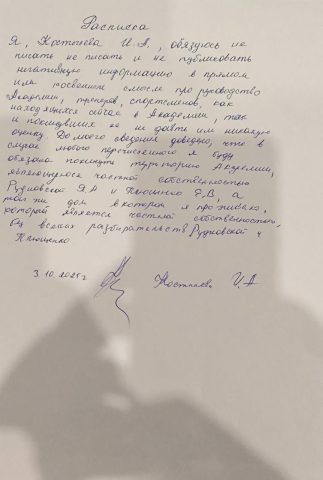 Расписка
Я, Костылева И.А., обязуюсь не
писать не писать и не публиковать
негативную информацию в прямом
или косвенном смысле про руководство
Академии, тренеров, спортсменов, как
находящихся сейчас в Академии, так
и покинувших ее не давать им никакую
оценку. До моего сведения доведено, что в
случае любого перечисленного я буду
обязана покинуть территорию Академии,
являющуюся частной собственностью
Рудковской Я.А и Плющенко Е.В, а
так же дом в котором я проживаю,
который является частной собственностью,
без всяких разбирательств Рудковской и
Плющенко.
3.10.2025г Костылева И.А